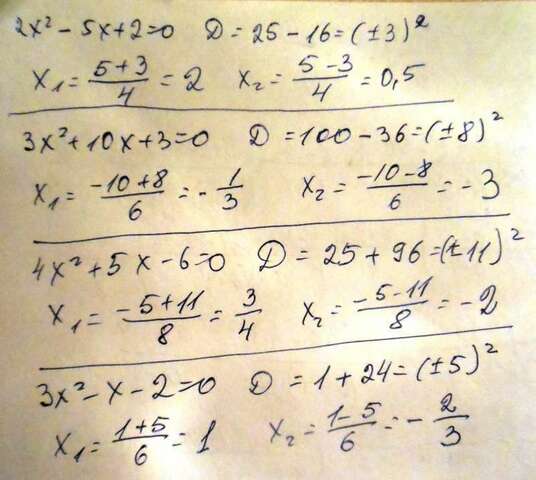 2x² - 5x + 2 = 0 D = 25 - 16 = (±3)²
x₁ = (5+3)/4 = 2 x₂ = (5-3)/4 = 0,5
3x² + 10x + 3 = 0 D = 100 - 36 = (±8)²
x₁ = (-10+8)/6 = -1/3 x₂ = (-10-8)/6 = -3
4x² + 5x - 6 = 0 D = 25 + 96 = (±11)²
x₁ = (-5+11)/8 = 3/4 x₂ = (-5-11)/8 = -2
3x² - x - 2 = 0 D = 1 + 24 = (±5)²
x₁ = (1+5)/6 = 1 x₂ = (1-5)/6 = -2/3